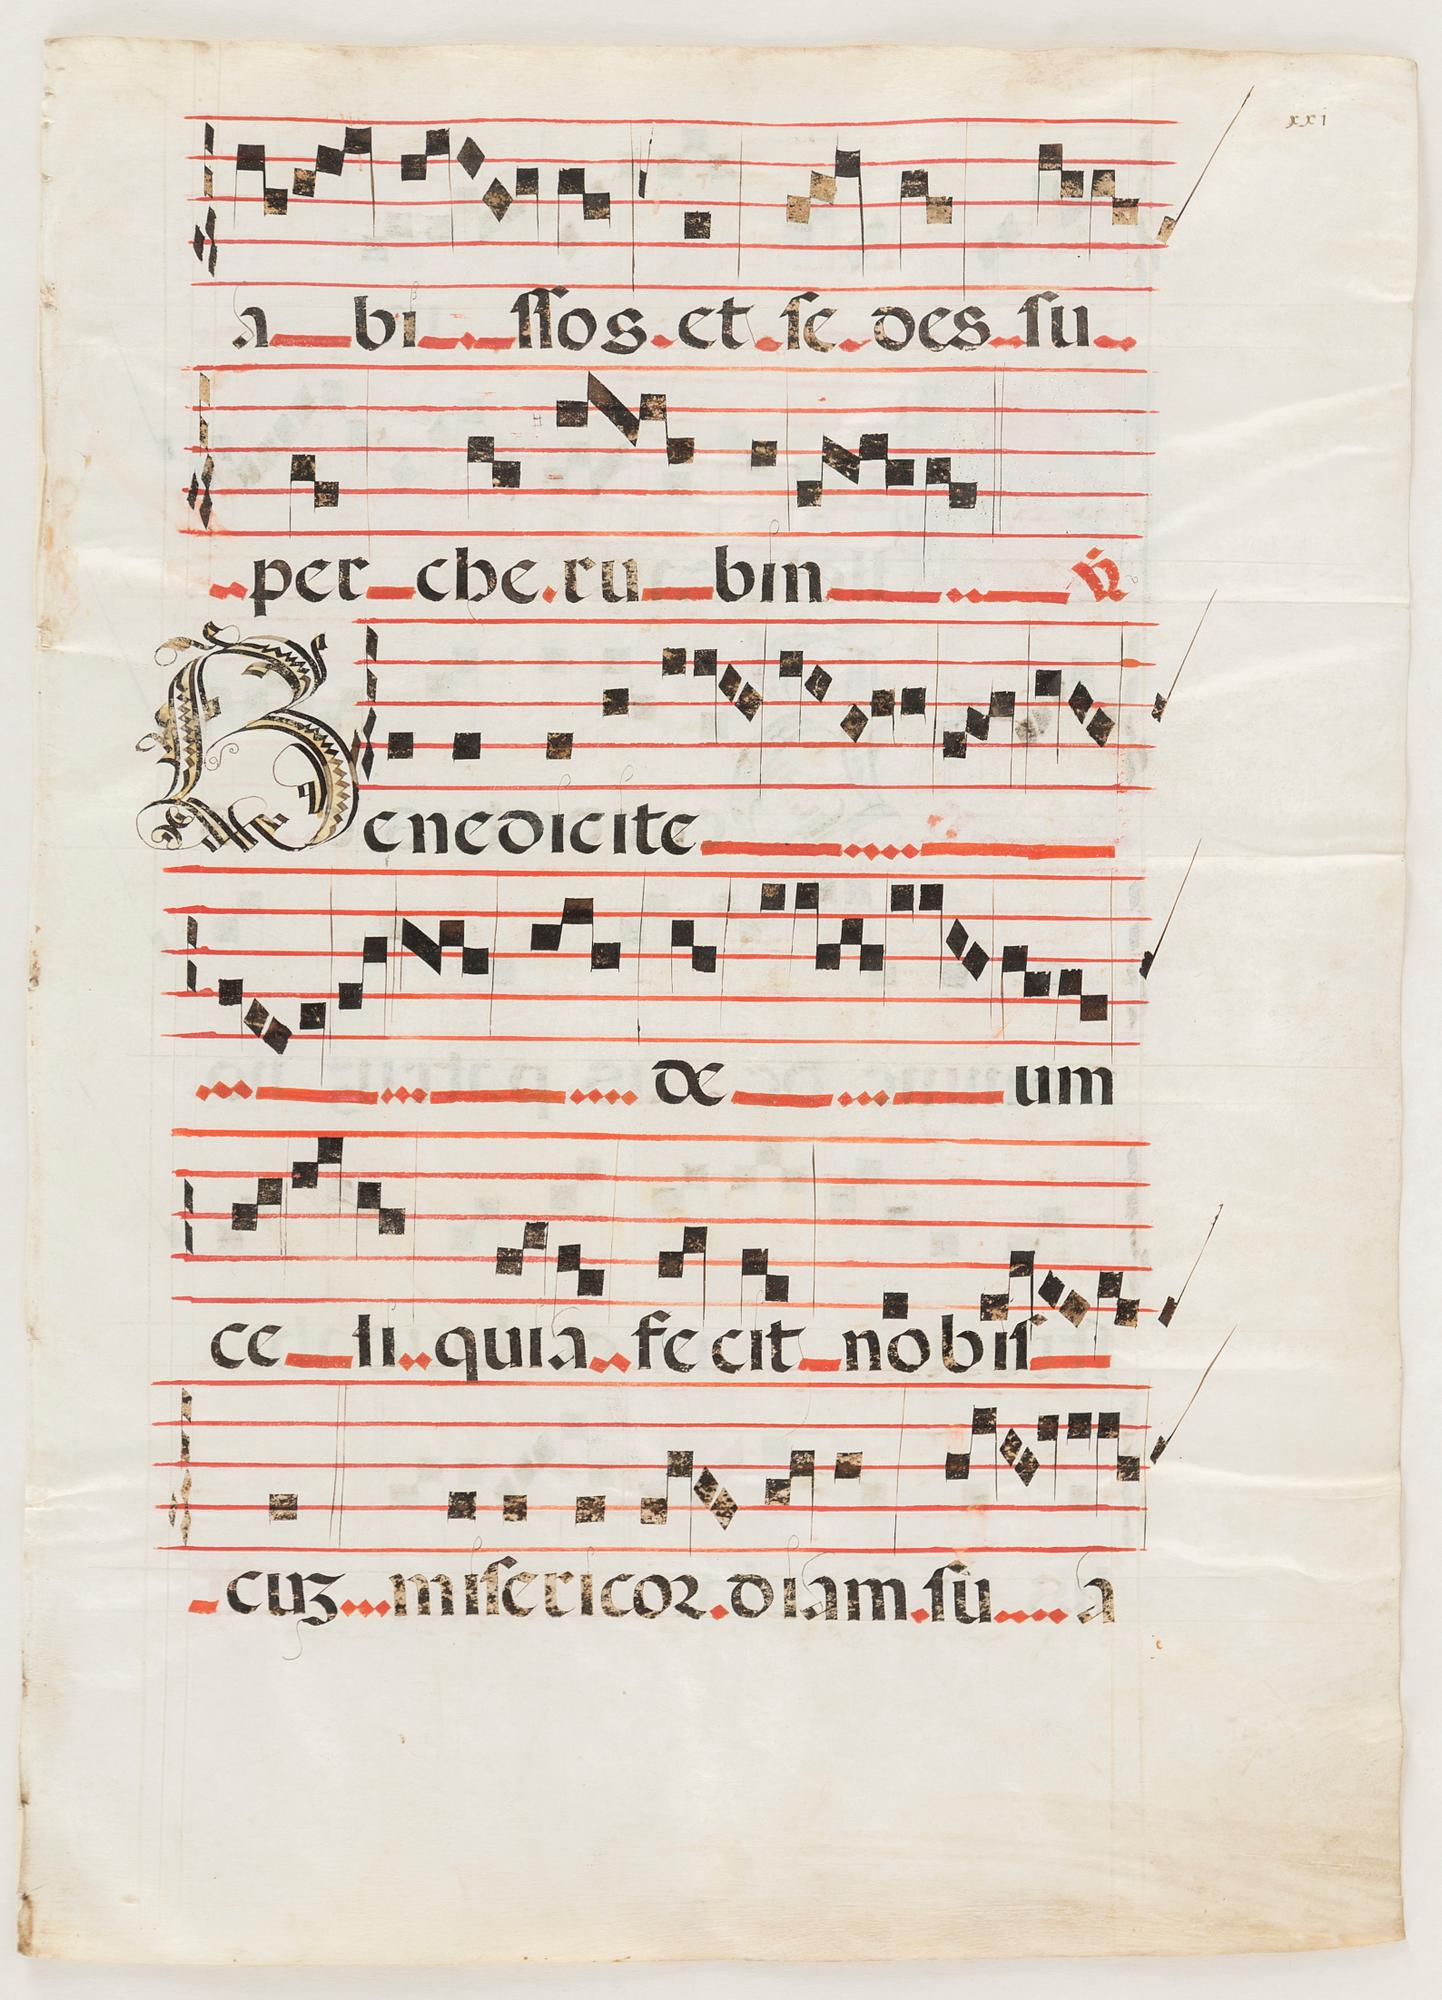 xxi
a bi ssos et se des su
per che ru bin v̄
Benedicite
de um
ce li quia fe cit nobis
cuz misericor diam su a